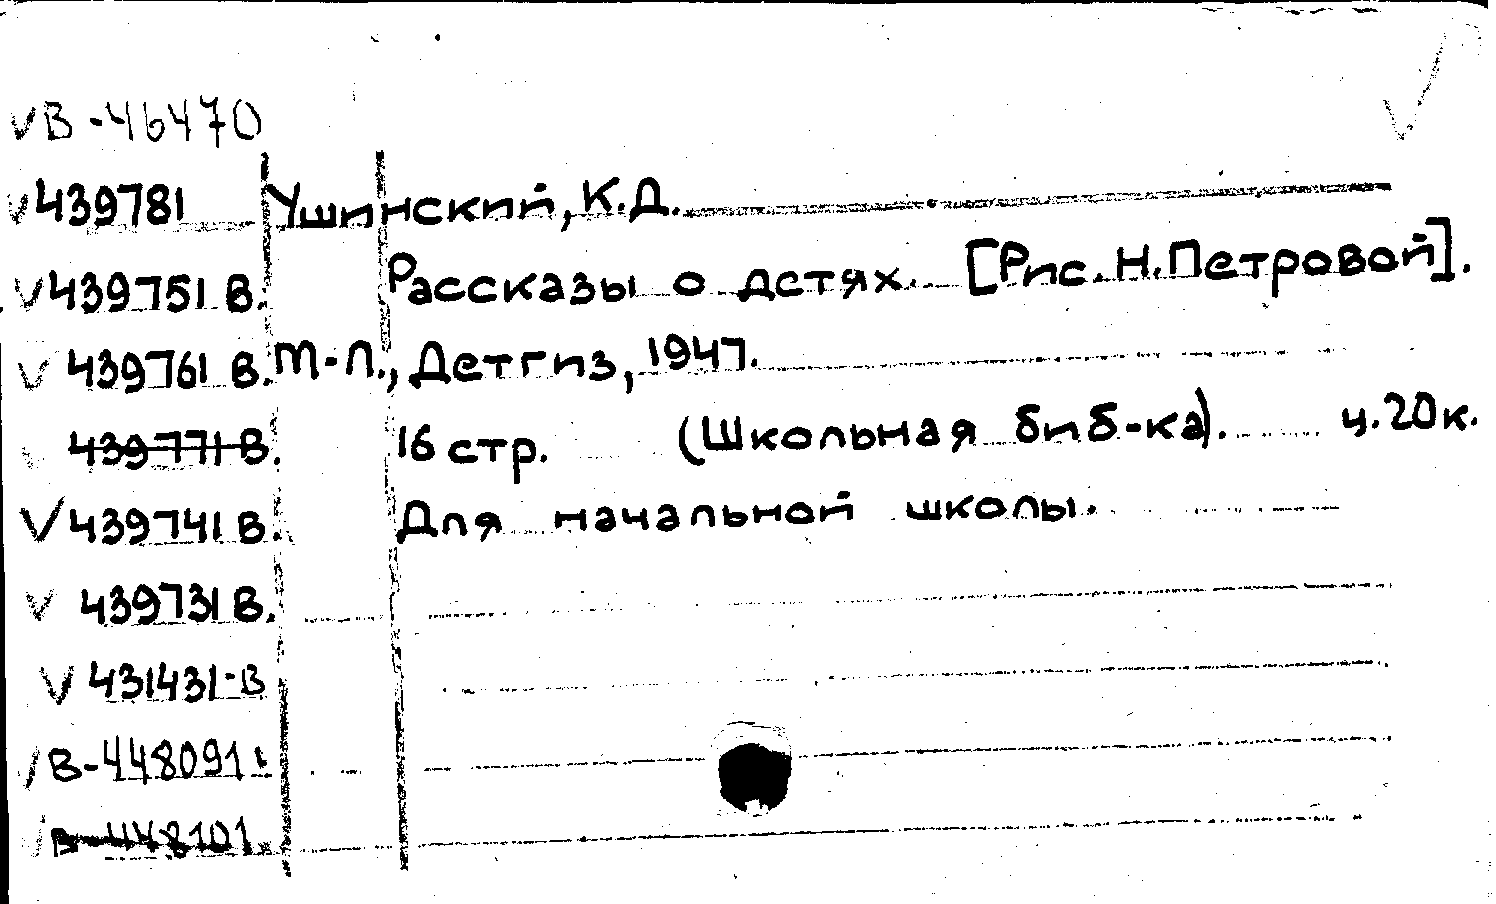 В-46470
439781 Ушинский, К.Д.
439751 В. Рассказы о детях. [Рис. Н. Петровой].
439761 В. М-Л., Детгиз, 1947.
439771 В. 16 стр. (Школьная биб-ка). ц. 20 к.
439741 В. Для начальной школы.
439731 В.
431431-В
В-448091
В-448101.